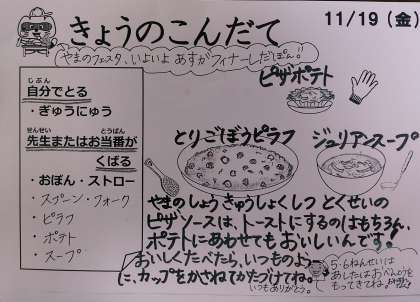 きょうのこんだて
11/19（金）
やまのフェスタ、いよいよ あすがフィナーレだぽん!!
じぶん
自分でとる
・ぎゅうにゅう
せんせい とうばん
先生またはお当番が
くばる
・おぼん・ストロー
・スプーン・フォーク
・ピラフ
・ポテト
・スープ
ピザポテト
とりごぼうピラフ
ジュリアンスープ
やまのしょう きゅうしょくしつ とくせいの
ピザソースは、トーストにするのはもちろん、
ポテトにあわせても おいしいんです!
おいしくたべたら、いつものよう
に、カップをかさねてかたづけてね。
いつもありがとう。
5・6ねんせいは
あしたは おべんとうを
もってきてね。